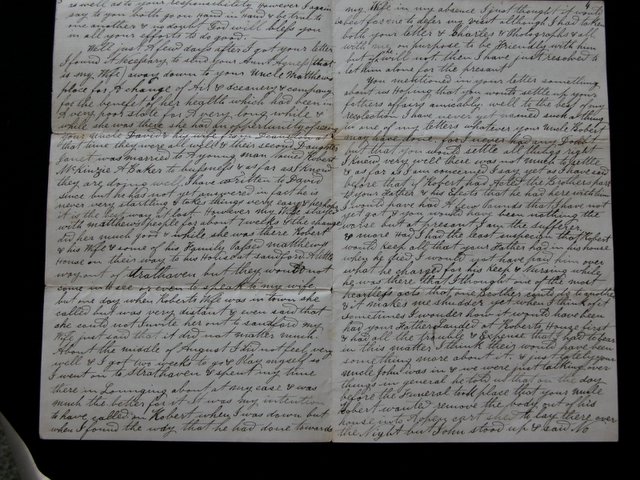 is well as to your responsibility & however I again
say to you both go on hand in hand & be true to
one another & no doubt God will bless you
in all your efforts to do good.
Well just A few days after I got your letter
I found it necessary to send your Aunt Agness that
is my Wife away down to your Uncle Matthews
place for A change of Air & sceanery & company
for the benefit of her health which had been in
A very poor state for A very long while &
while she was there she had An opportunity of seeing
your uncle David &
that time they were all well & their second Daughter
Janet was married to A young man named Robert
McKenzie A Baker to buisness & so far as I know
they are doing well I have written to David
since but he had not yet answered in fact he is
never very startling & takes things very easy & perhaps
it is the best way at last. however my Wife stayed
with matthews people for about 7 weeks & the change
did her much good & while she was there Robert
& his Wife & some of his Family Passed matthews
House on their way to his House at Sandford A little
way out of Strathaven but they would not
come in to see or even to speak to my wife
but one day when Roberts Wife was in town she
called but was very distant & even said that
she could not Invite her out to Sandford my
Wife just said that it did not matter much.
About the middle of August I did not feel very
well & I got two weeks to go & Play myself so
I went on to Strathaven & spent my time
there in Lounging about at my ease & was
much the better for it It was my intention
to have called on Robert when I was down but
when I found the way that he had done towards
my Wife in my absence I just thought it would
be best for me to defer my visit although I had taken
both your letter & Charles & Photographs & all
with me on purpose to be Friendly with him
but it will not then I have just resolved to
let him alone for the present
You mentioned in your letter something
about us hoping that you would settle up your
fathers affairs amicably well to the best of my
recolection I have never yet named such a thing
in one of my letters whatever your uncle Robert
may have done for I never had any Doubt
but that you would settle all things right for
I knew very well there was not much to settle
& as far as I am concerned I say yet as I have said
before that if Robert had Acted the Brothers part
to your Father & his Debts that he had here with him
I would have had A few Pounds that I have not
yet got & you would have been nothing the
worse but of present I am the sufferer
& more had I had the least suspicion that Robert
would keep all that your Father had in his house
when he died I would yet have paid him over
what he charged for his keep & Nursing while
he was there that I thought one of the most
heartless acts that one Brother could do to another
& it makes me shudder yet when I think of it
Sometimes I wonder how it would have been
had your Father landed at Roberts House first
& had all the trouble & Expense that I had to bear
in this matter I think there would have been
some thing more about it. & just lately your
uncle John was in & we were just talking over
things in general he told us that on the day
before the Funeral took place that your uncle
Robert wanted remove the body out of his
house into A open cart shed to lay there over
the Night but John stood up & said No